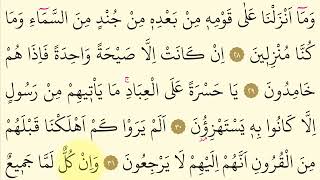 وَمَٓا اَنْزَلْنَا عَلٰى قَوْمِه۪ مِنْ بَعْدِه۪ مِنْ جُنْدٍ مِنَ السَّمَٓاءِ وَمَا
كُنَّا مُنْزِل۪ينَ ﴿٢٨﴾ اِنْ كَانَتْ اِلَّا صَيْحَةً وَاحِدَةً فَاِذَا هُمْ
خَامِدُونَ ﴿٢٩﴾ يَا حَسْرَةً عَلَى الْعِبَادِۚ مَا يَأْت۪يهِمْ مِنْ رَسُولٍ
اِلَّا كَانُوا بِه۪ يَسْتَهْزِؤُ۫نَ ﴿٣٠﴾ اَلَمْ يَرَوْا كَمْ اَهْلَكْنَا قَبْلَهُمْ
مِنَ الْقُرُونِ اَنَّهُمْ اِلَيْهِمْ لَا يَرْجِعُونَ ﴿٣١﴾ وَاِنْ كُلٌّ لَمَّا جَم۪يعٌ